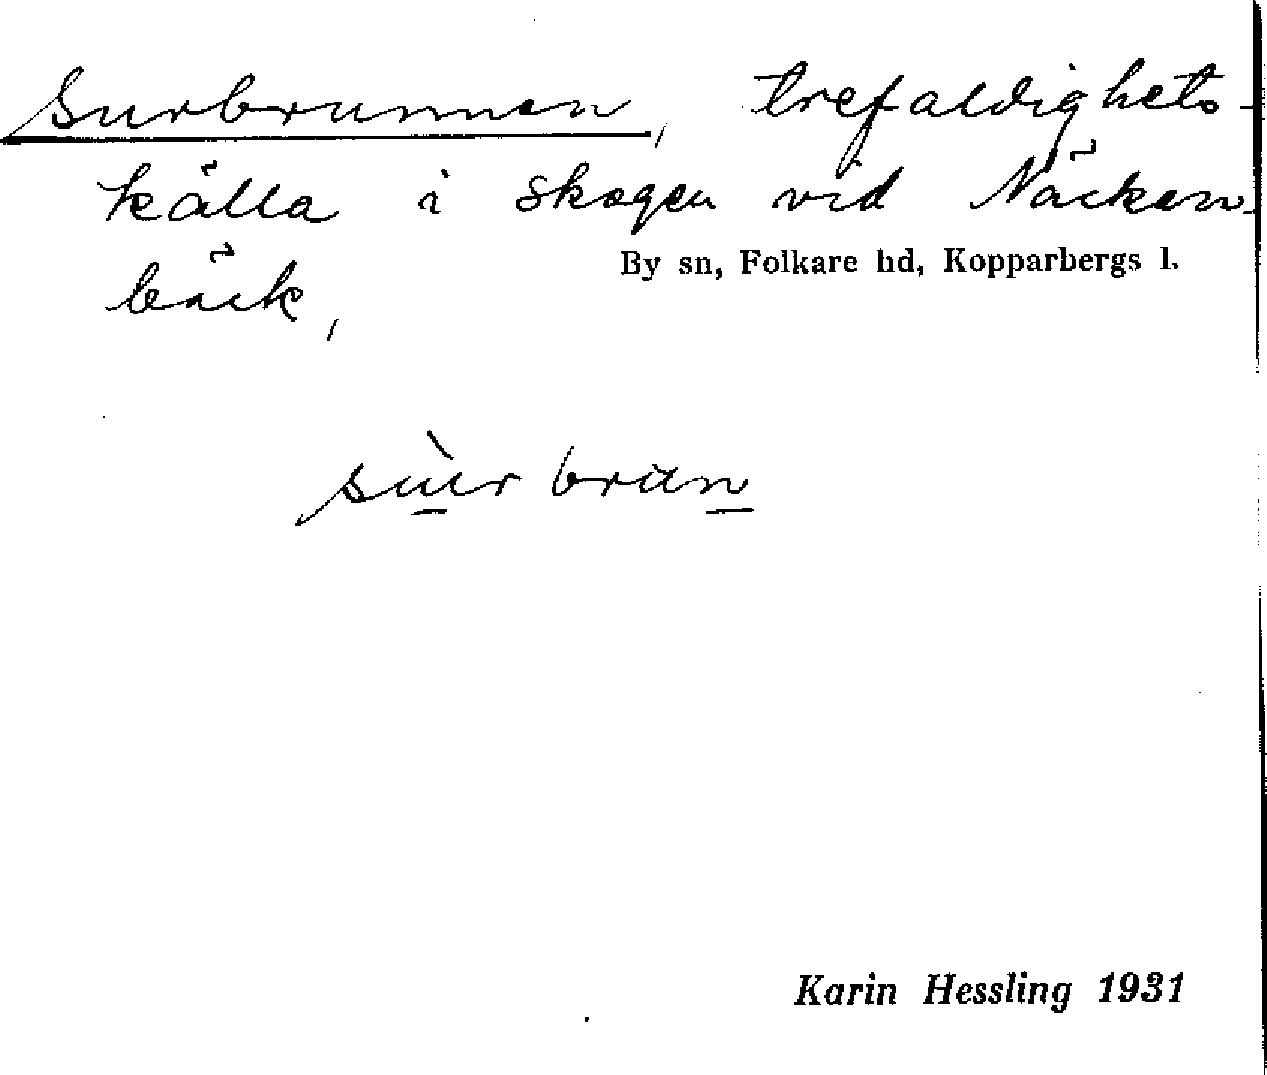 Surbrunnen, trefaldighets-
källa i skogen vid Näcken-
bäck,
By sn, Folkare hd, Kopparbergs l.
sùr brun
Karin Hessling 1931